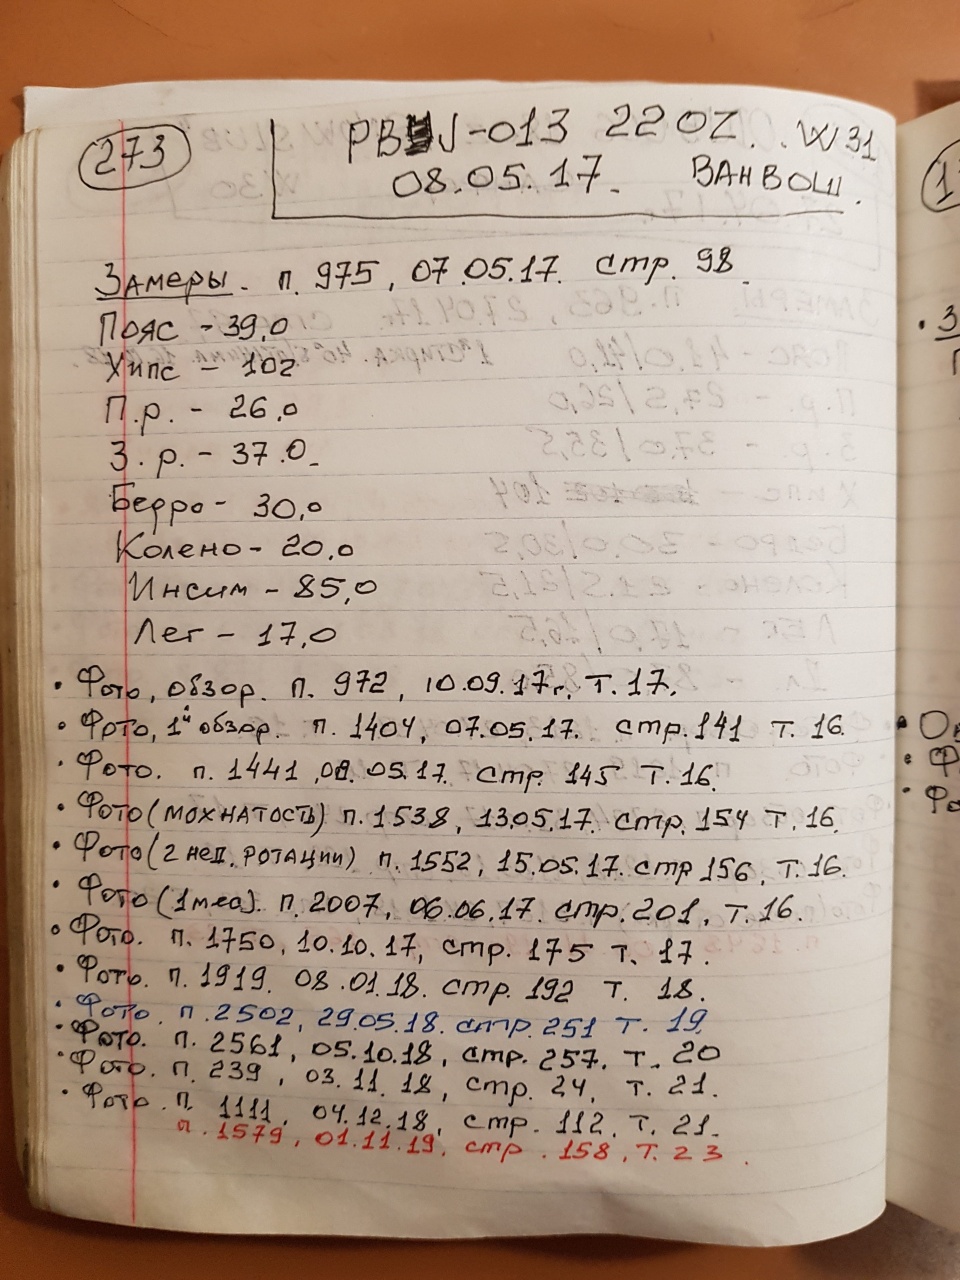 273
PBJ-013 22OZ. W31
08.05.17. ВАНВОШ.
Замеры. п. 975, 07.05.17. стр. 98
Пояс - 39,0
Хипс - 102
П.р. - 26,0
З.р. - 37.0
Бедро - 30,0
Колено - 20,0
Инсим - 85,0
Лег - 17,0
• Фото, обзор. п. 972, 10.09.17г. Т.17.
• Фото, 1й обзор. п. 1404, 07.05.17. стр. 141 Т. 16.
• Фото. п. 1441, 08.05.17. стр. 145 Т.16.
• Фото (мохнатость) п. 1538, 13.05.17. стр. 154 Т.16.
• Фото (2 нед. ротации) п. 1552, 15.05.17. стр 156, Т.16.
• Фото (1мес). п. 2007, 06.06.17. стр. 201, Т.16.
• Фото. п. 1750, 10.10.17, стр. 175 Т. 17.
• Фото. п. 1919. 08.01.18. стр. 192 Т. 18.
• Фото. п. 2502, 29.05.18. стр. 251 Т. 19.
• Фото. п. 2561, 05.10.18, стр. 257. Т. 20
• Фото. п. 239, 03.11.18, стр. 24, Т. 21.
• Фото. п. 1111, 04.12.18, стр. 112, Т. 21.
п. 1579, 01.11.19, стр. 158, Т. 23.